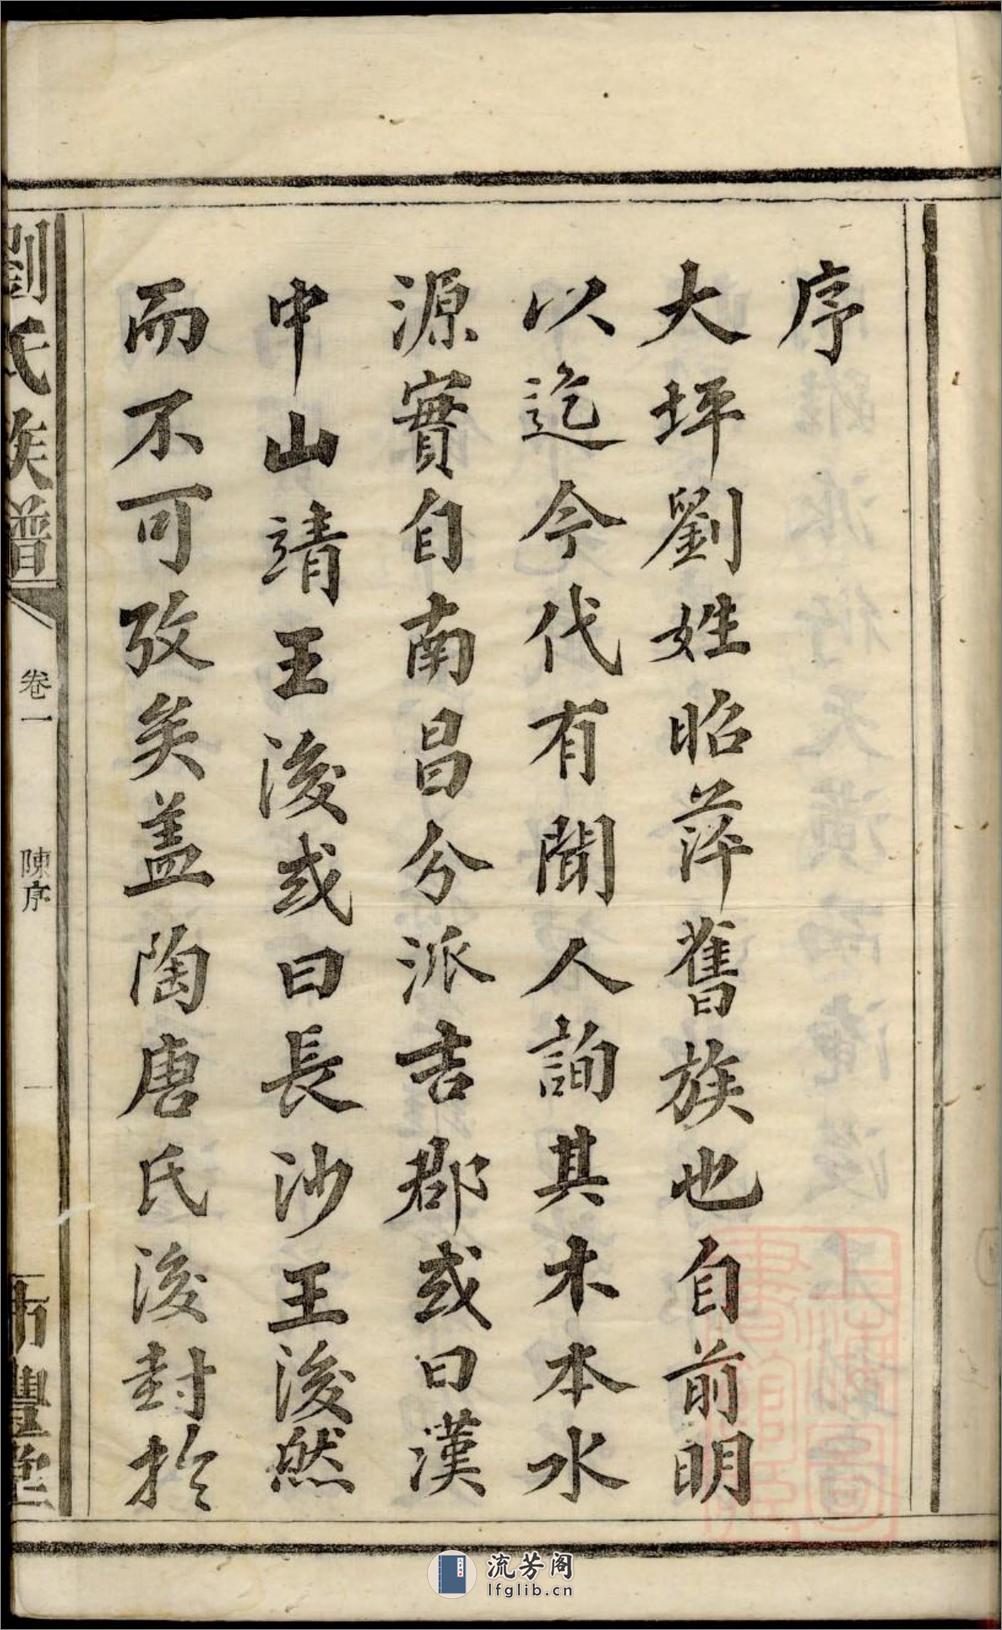 序
大坪劉姓昭萍舊族也自前明
以迄今代有聞人詢其木本水
源實自南昌分派吉郡或曰漢
中山靖王後或曰長沙王後然
而不可攷矣蓋陶唐氏後封於
劉氏族譜
卷一
陳序
一
豐堂
流芳阁
lfglib.cn